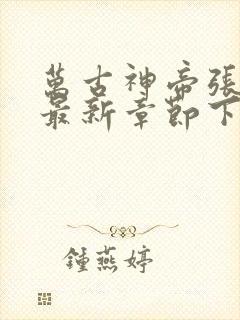 萬古神帝張
最新章節下
鍾燕婷